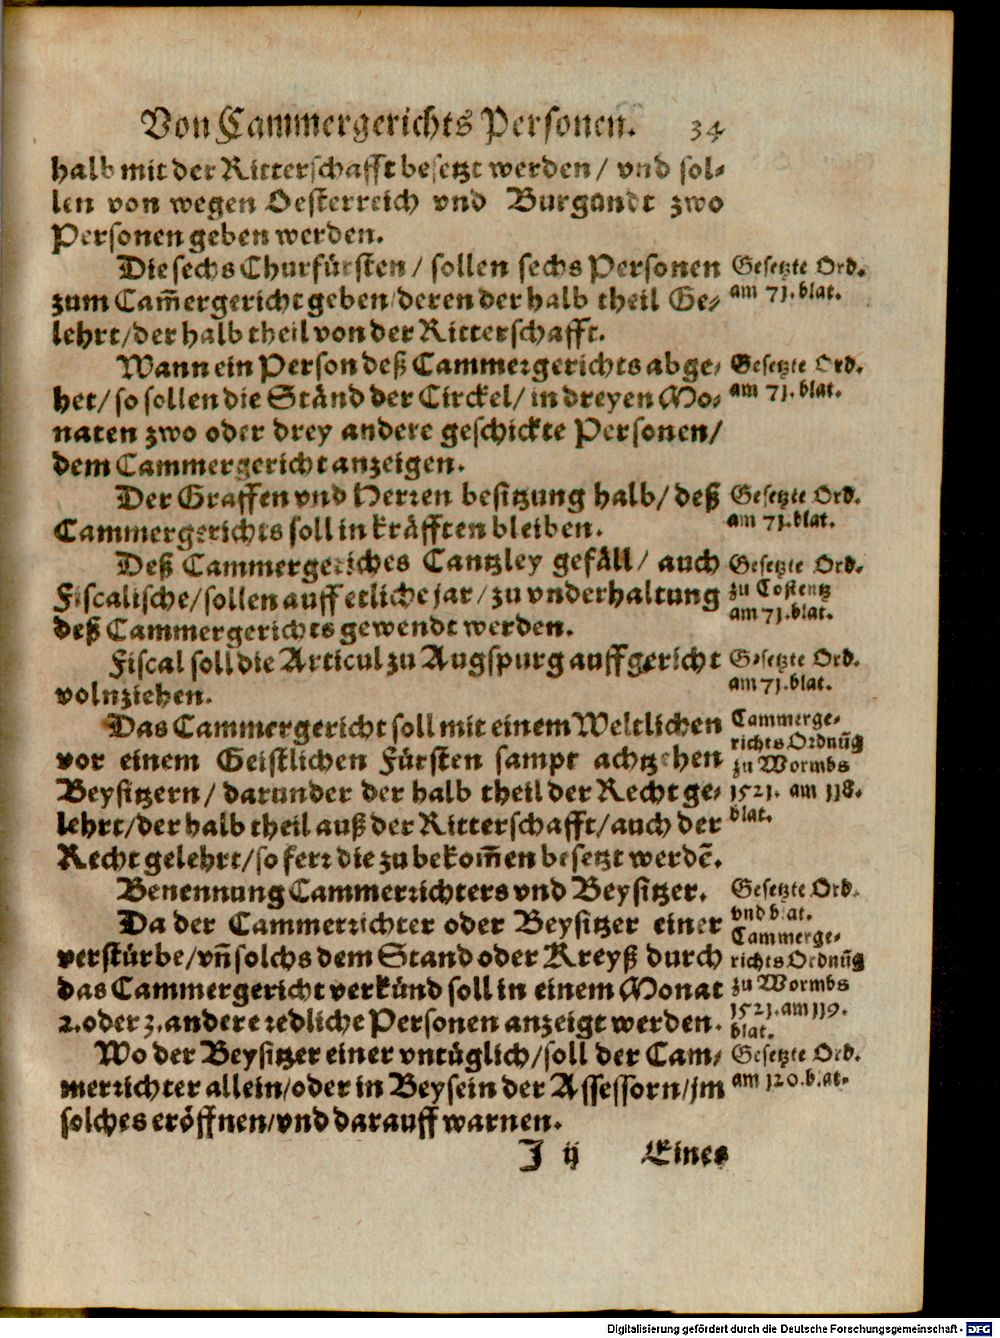 Von Cammergerichts Personen. 34
halb mit der Ritterschafft besetzt werden / vnd sol-
len von wegen Oesterreich vnd Burgundt zwo
Personen geben werden.
Die sechs Churfürsten / sollen sechs Personen
zum Cam̄ergericht geben / deren der halb theil Ge-
lehrt / der halb theil von der Ritterschafft.
Gesetzte Ord.
am 71. blat.
Wann ein Person deß Cammergerichts abge-
het / so sollen die Ständ der Circkel / in dreyen Mo-
naten zwo oder drey andere geschickte Personen /
dem Cammergericht anzeigen.
Gesetzte Ord.
am 71. blat.
Der Graffen vnd Herren besitzung halb / deß
Cammergerichts soll in kräfften bleiben.
Gesetzte Ord.
am 71. blat.
Deß Cammergeriches Cantzley gefäll / auch
Fiscalische / sollen auff etliche jar / zu vnderhaltung
deß Cammergerichts gewendt werden.
Gesetzte Ord.
zu Costentz
am 71. blat.
Fiscal soll die Articul zu Augspurg auffgericht
volnziehen.
Gesetzte Ord.
am 71. blat.
Das Cammergericht soll mit einem Weltlichen
vor einem Geistlichen Fürsten sampt achtzehen
Beysitzern / darunder der halb theil der Recht ge-
lehrt / der halb theil auß der Ritterschafft / auch der
Recht gelehrt / so ferr die zu bekom̄en besetzt werdē.
Cammerge-
richts Ordnūg
zu Wormbs
1521. am 118.
blat.
Benennung Cammerrichters vnd Beysitzer.
Da der Cammerrichter oder Beysitzer einer
verstürbe / vn̄ solchs dem Stand oder Kreyß durch
das Cammergericht verkünd soll in einem Monat
2. oder 3. andere redliche Personen anzeigt werden.
Gesetzte Ord.
vnd blat.
Cammerge-
richts Ordnūg
zu Wormbs
1521. am 119.
blat.
Wo der Beysitzer einer vntüglich / soll der Cam-
merrichter allein / oder in Beysein der Assessorn / jm
solches eröffnen / vnd darauff warnen.
Gesetzte Ord.
am 120. blat.
I ij Eines
Digitalisierung gefördert durch die Deutsche Forschungsgemeinschaft - DFG